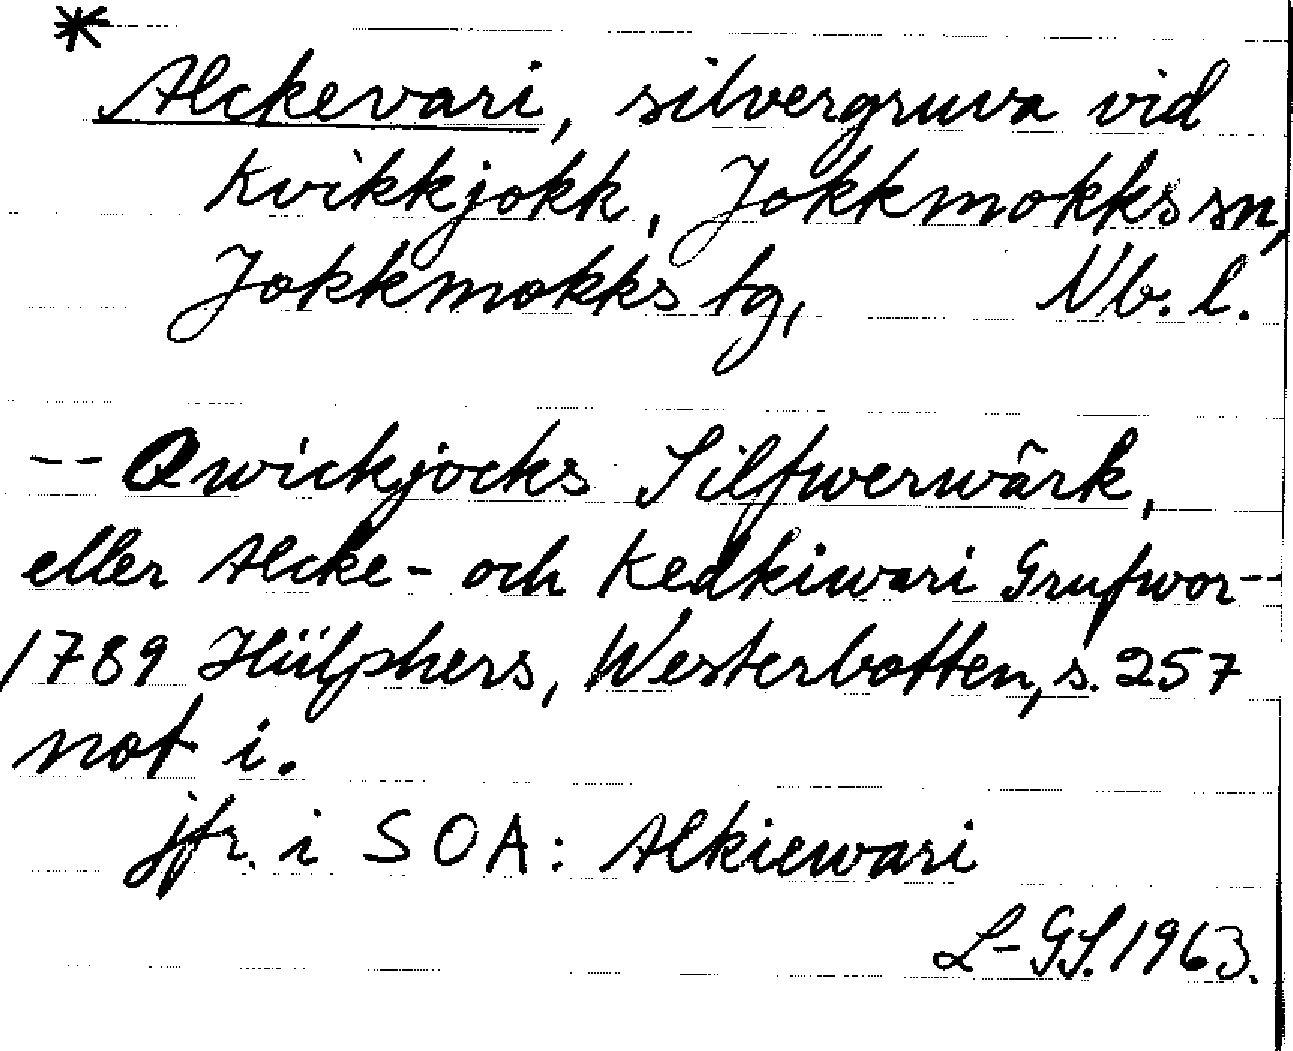 *
Alckevari, silvergruva vid
Kvikkjokk, Jokkmokks sn,
Jokkmokks tg, Nb. l.
-- Qwickjocks Silfwerwärk,
eller Alcke- och Kedkiwari Grufwor--
1789 Hülphers, Westerbotten, s. 257
not i.
jfr. i SOA: Alkiewari
L-GS. 1963.